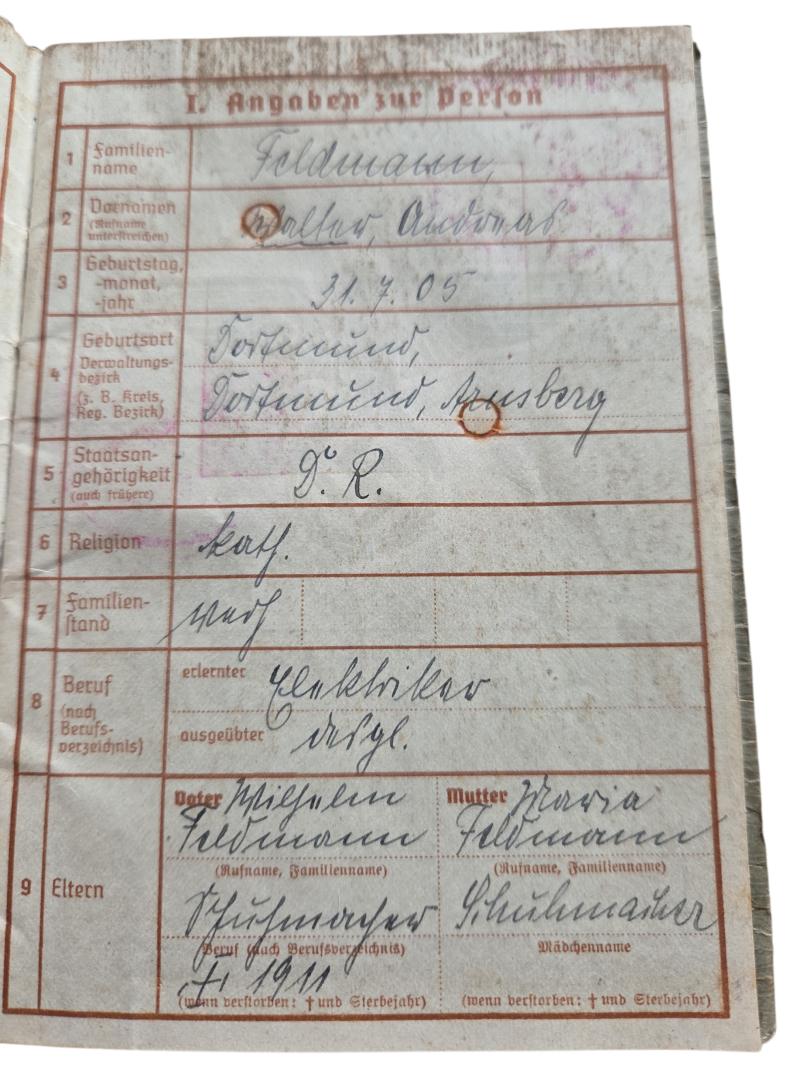 I. Angaben zur Person
1 Familien-
name
Feldmann,
2 Vornamen
(Rufname
unterstreichen)
Walter, Andreas
3 Geburtstag,
-monat,
-jahr
31.7.05
4 Geburtsort
Verwaltungs-
bezirk
(z. B. Kreis,
Reg. Bezirk)
Dortmund,
Dortmund, Arnsberg
5 Staatsan-
gehörigkeit
(auch frühere)
D. R.
6 Religion
kath.
7 Familien-
stand
verh
8 Beruf
(nach
Berufs-
verzeichnis)
erlernter Elektriker
ausgeübter desgl.
9 Eltern
Vater Wilhelm
Feldmann
(Rufname, Familienname)
Schuhmacher
Beruf (nach Berufsverzeichnis)
† 1911
(wenn verstorben: † und Sterbejahr)
Mutter Maria
Feldmann
(Rufname, Familienname)
Schuhmacher
Mädchenname
(wenn verstorben: † und Sterbejahr)